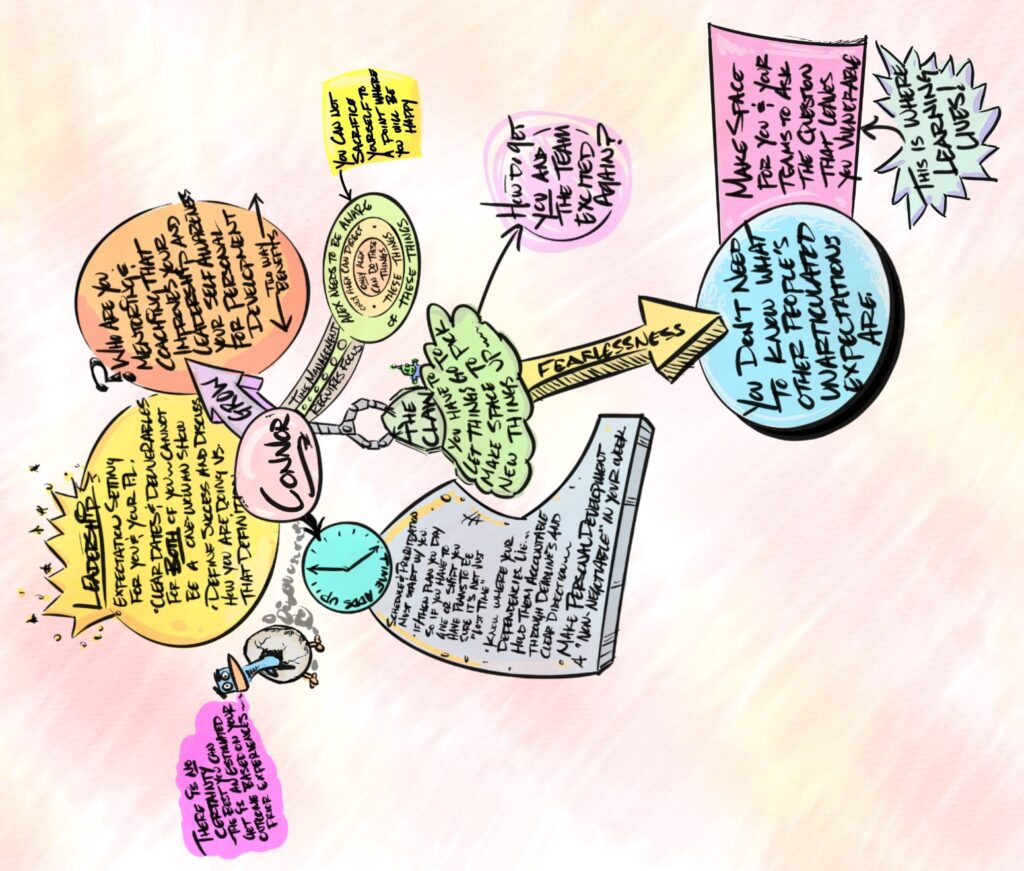 LEADERSHIP
EXPECTATION SETTING
FOR YOU & YOUR PL.
• CLEAR DATES & DELIVERABLES
FOR BOTH OF YOU... CANNOT
BE A ONE WOMAN SHOW
• DEFINE SUCCESS AND DISCUSS
HOW YOU ARE DOING VS.
THAT DEFINITION
WHO ARE YOU
MENTORING &
COACHING THAT
IMPROVES YOUR
LEADERSHIP AND
YOUR SELF AWARENESS
FOR PERSONAL
DEVELOPMENT
TWO WAY
BENEFITS
GROW
CONNOR
THE MANAGEMENT
REQUIRES FOCUS
ALEX NEEDS TO BE AWARE
OF THESE THINGS
ONLY ALEX CAN DIRECT
THESE THINGS
ONLY ALEX
CAN DO THESE
THINGS
YOU CAN NOT
SACRIFICE
YOURSELF TO
A POINT WHERE
YOU WILL BE
HAPPY
THERE IS NO
CERTAINTY
THE BEST YOU CAN
GET IS AN ESTIMATED
OUTCOME BASED ON YOUR
PRIOR EXPERIENCES...
TIME ADDS UP
SCHEDULE & PRIORITIZATION
MUST START W/ YOU
• IF/THEN PLAN YOU DAY
SO IF YOU HAVE TO
GIVE OR SHIFT YOU
HAVE PLANS TO BE
SURE IT'S NOT JUST
"LOST TIME"
• KNOW WHERE YOUR
DEPENDENCIES LIE...
HOLD THEM ACCOUNTABLE
THROUGH DEADLINE'S AND
CLEAR DIRECTION...
MAKE PERSONAL DEVELOPMENT
A "NON-NEGOTIABLE" IN YOUR WEEK
THE
CLAW
YOU HAVE TO
LET THINGS GO TO
MAKE SPACE FOR
NEW THINGS
HOW DO I GET
YOU AND
THE TEAM
EXCITED
AGAIN?
FEARLESSNESS
YOU DON'T NEED
TO KNOW WHAT
OTHER PEOPLE'S
UNARTICULATED
EXPECTATIONS
ARE.
MAKE SPACE
FOR YOU & YOUR
TEAMS TO ASK
THE QUESTION
THAT LEAVES
YOU VULNERABLE
THIS IS WHERE
LEARNING
LIVES!